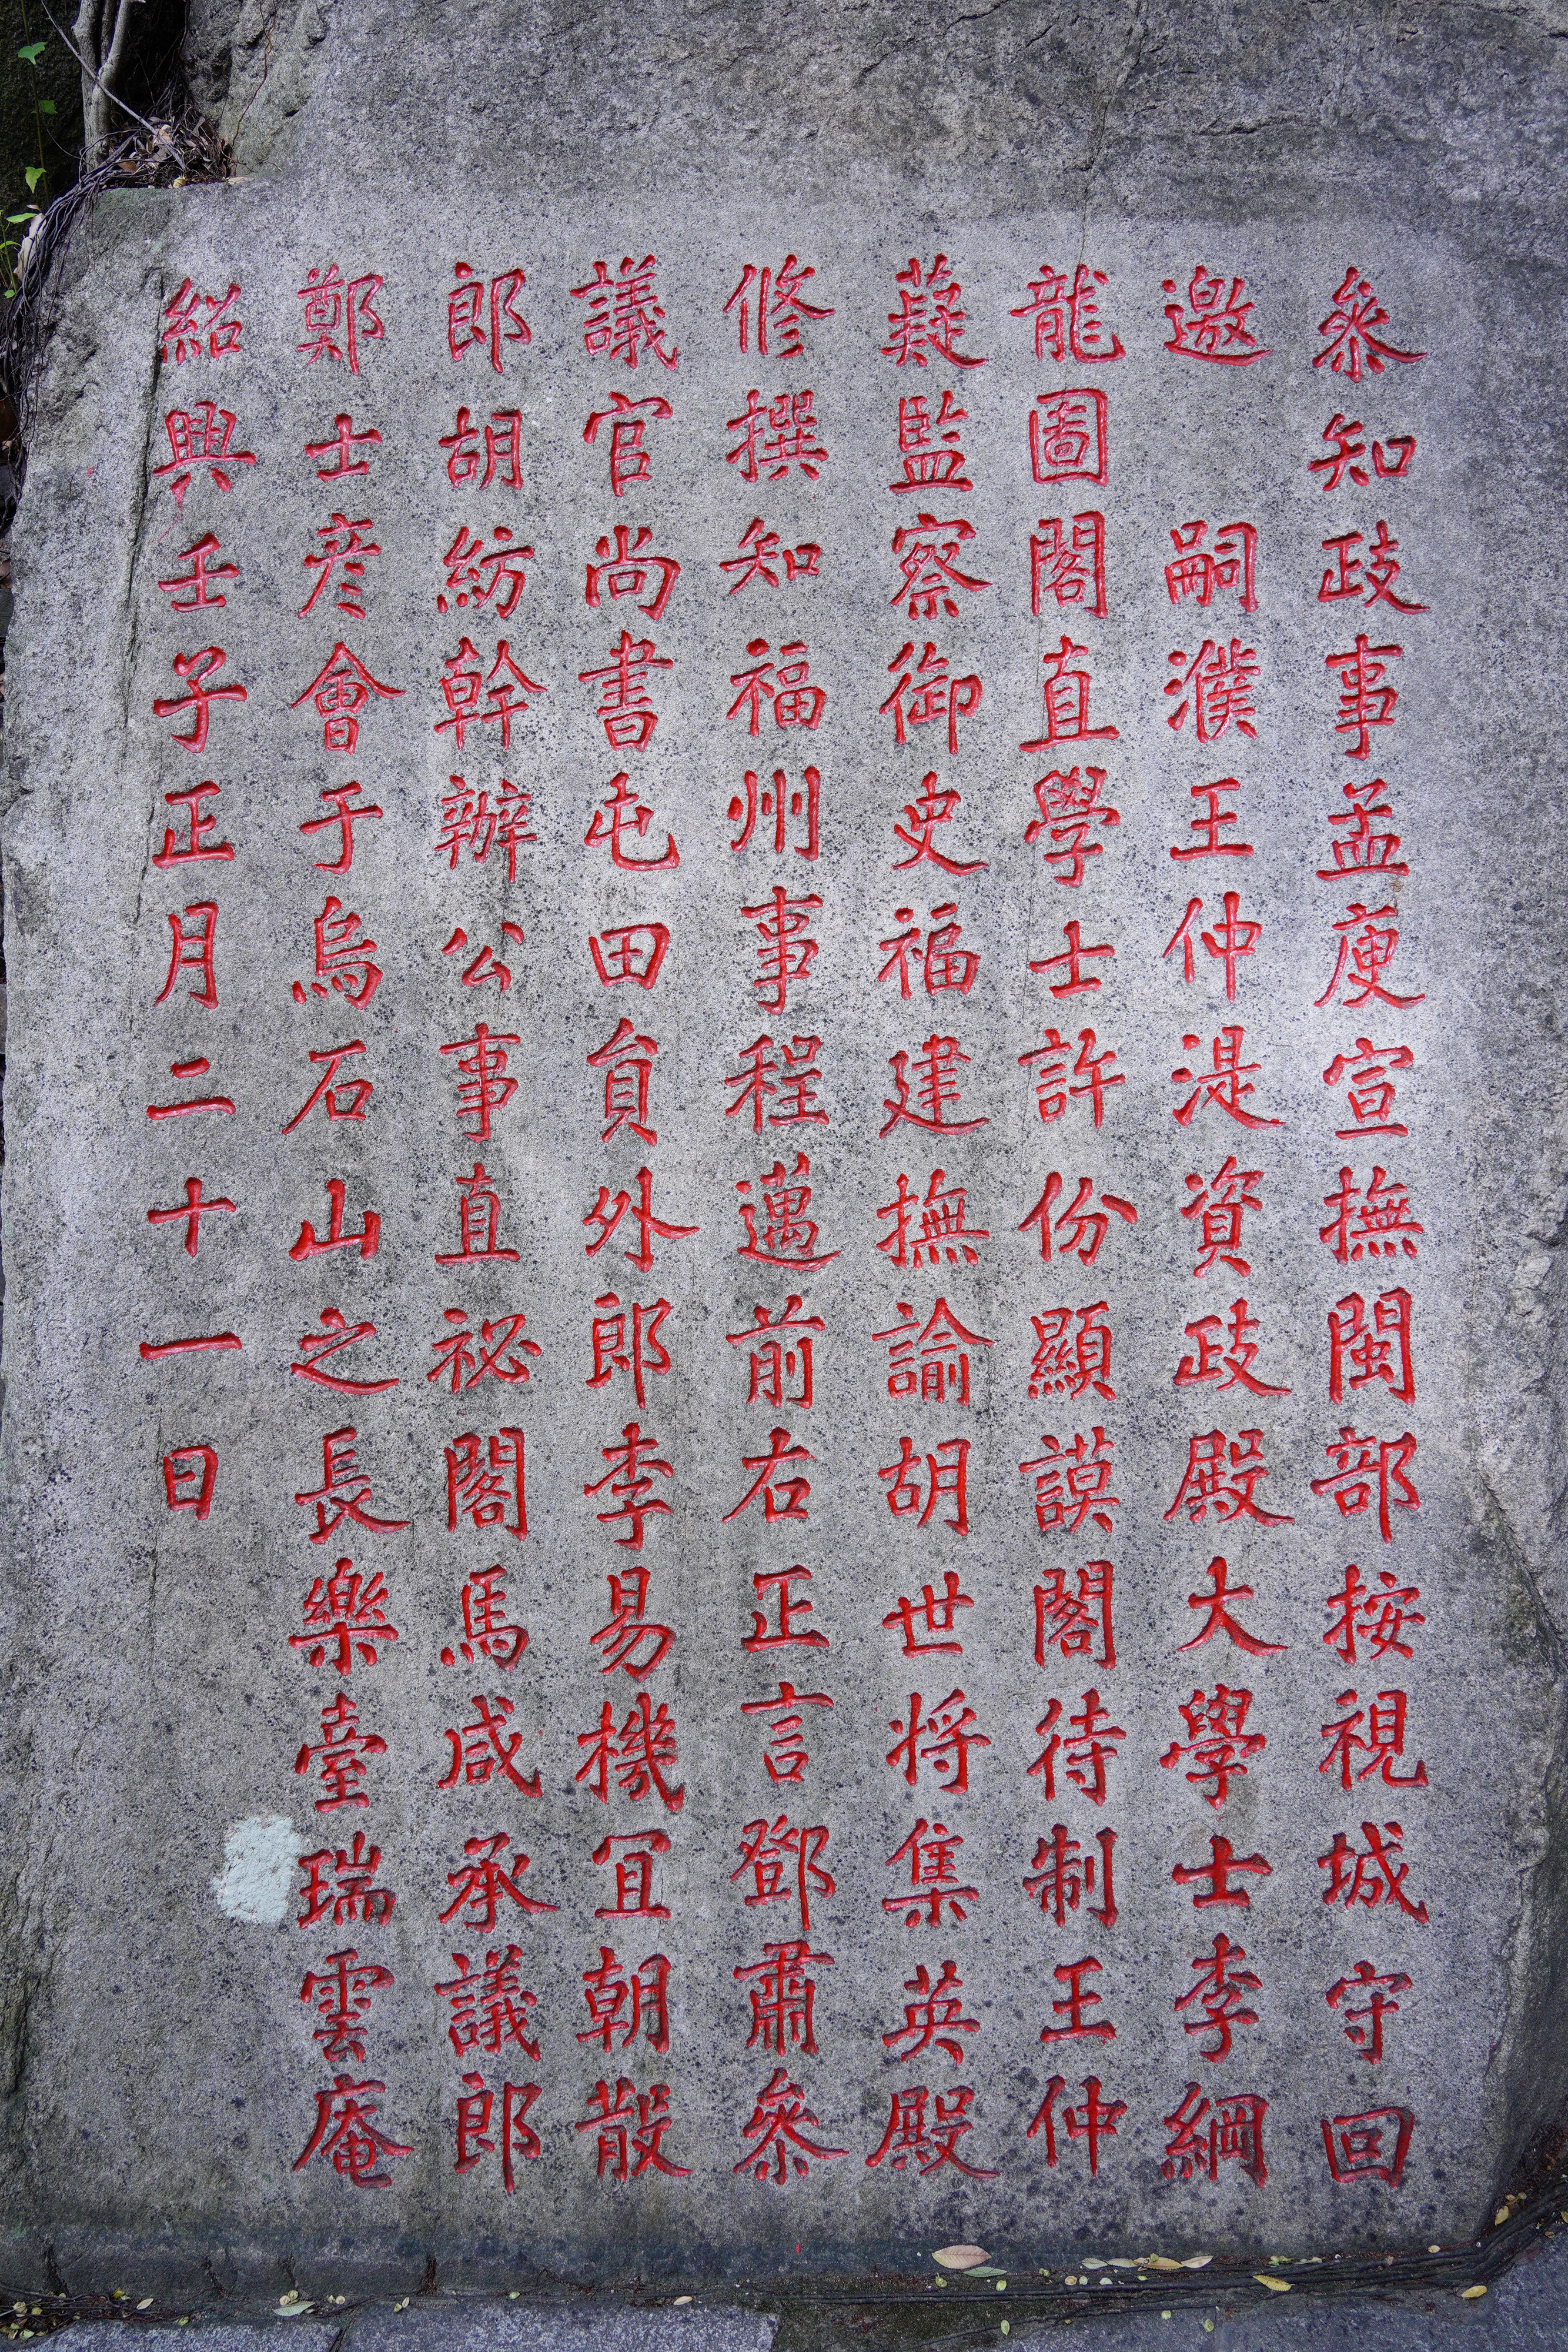 叅知政事孟庾宣撫閩部按視城守回
邀　嗣濮王仲湜資政殿大學士李綱
龍圖閣直學士許份顯謨閣待制王仲
薿監察御史福建撫諭胡世将集英殿
修撰知福州事程邁前右正言鄧肅叅
議官尚書屯田員外郎李易機冝朝散
郎胡紡幹辦公事直祕閣馬咸承議郎
鄭士彦會于烏石山之長樂臺瑞雲庵
紹興壬子正月二十一日